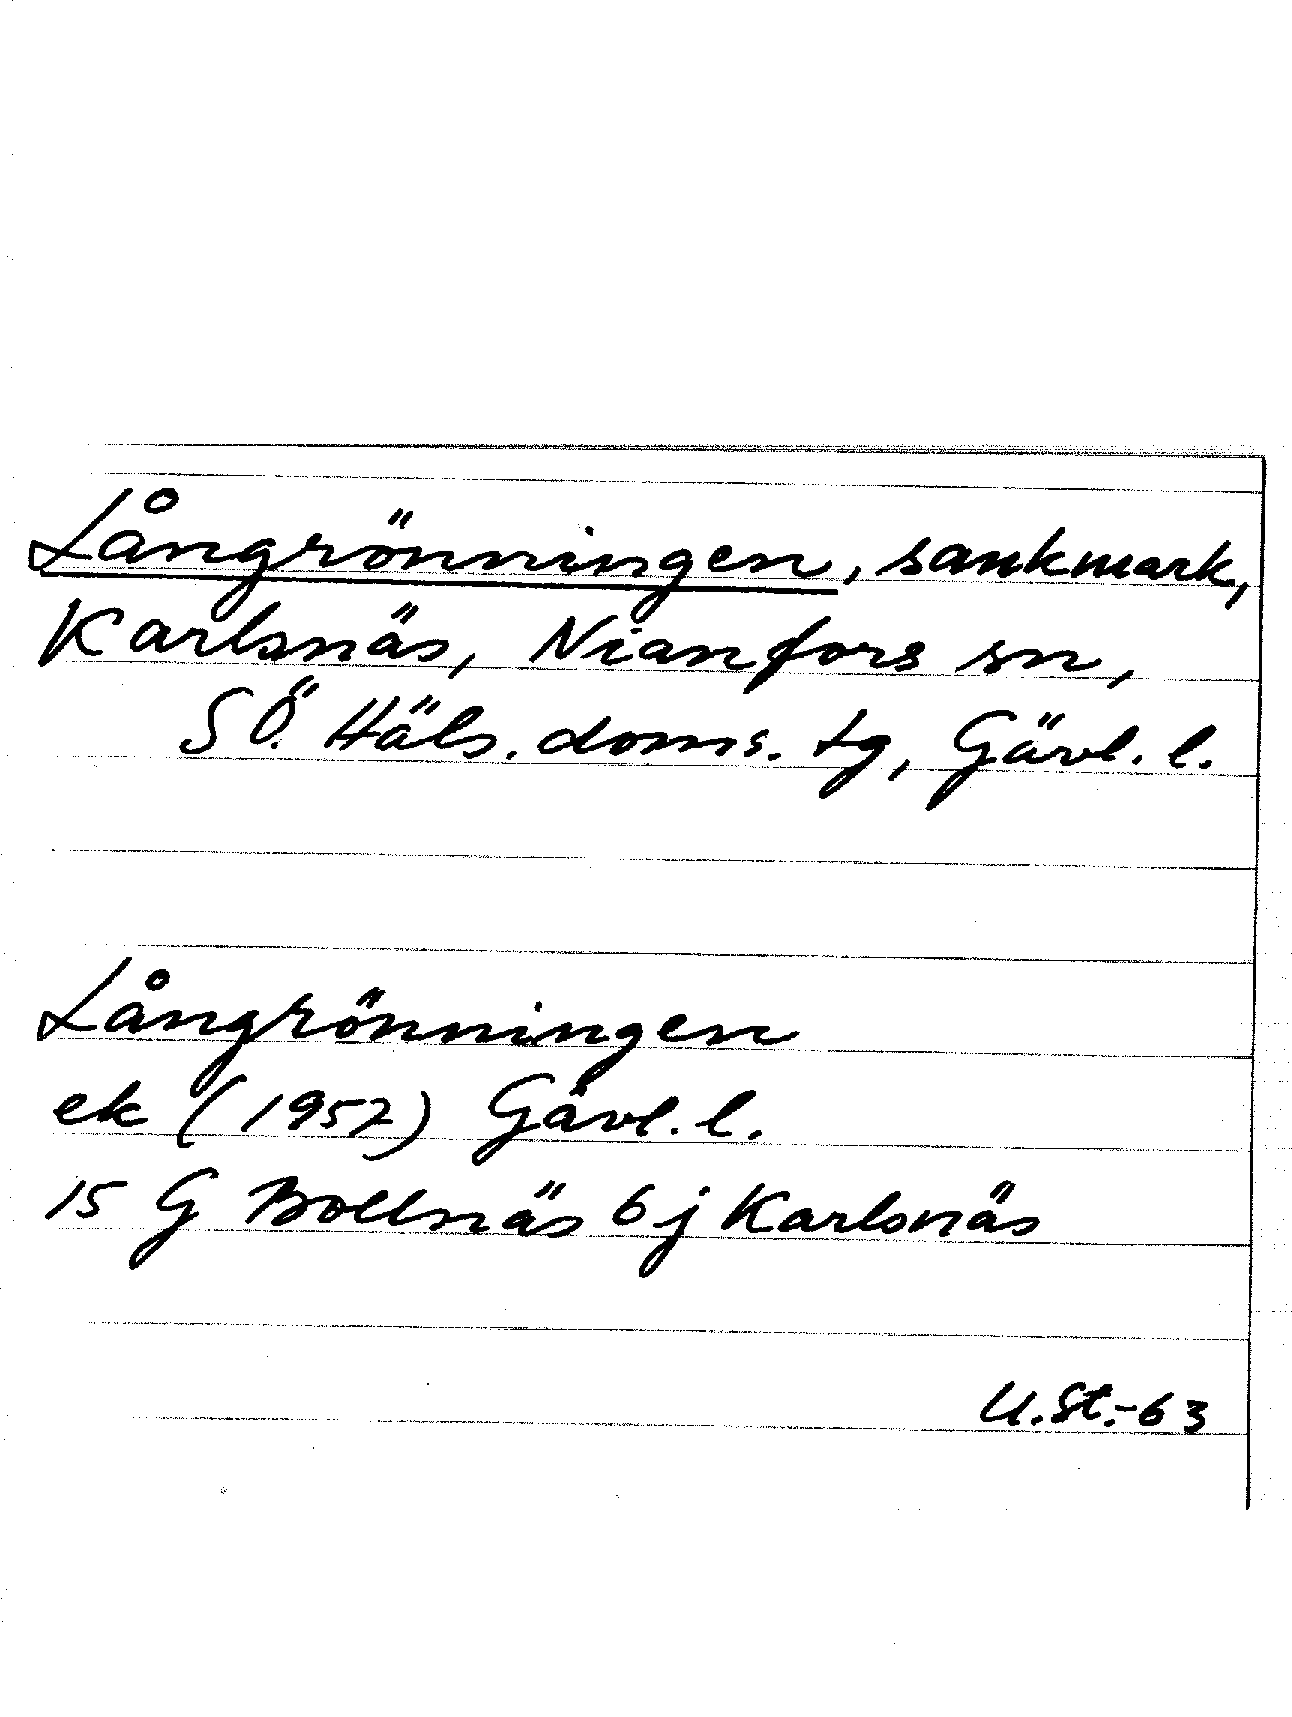 Långrönningen, sankmark,
Karlsnäs, Nianfors sn,
SÖ. Häls. doms. tg, Gävl. l.
Långrönningen
ek (1957) Gävl. l.
15 G Bollnäs 6 j Karlsnäs
U.St.-63